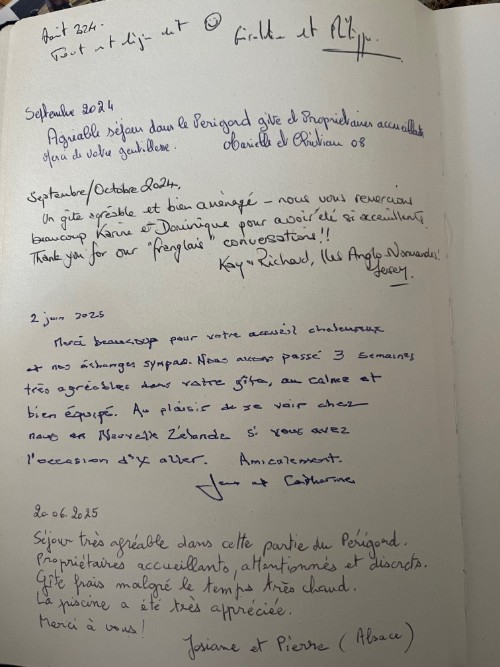 Août 2024.
Tout est déjà dit ☺ et Philippe.
Septembre 2024
Agréable séjour dans le Perigord gite et Propriétaires accueillants
Merci de votre gentillesse. Marielle et Christian 08
Septembre/Octobre 2024,
Un gîte agréable et bien aménagé - nous vous remercions
beaucoup Karine et Dominique pour avoir été si acceuillents.
Thank you for our "frenglais" conversations!!
Kay & Richard, Iles Anglo-Normandes!
Jersey.
2 juin 2025
Merci beaucoup pour votre accueil chaleureux
et nos échanges sympas. Nous avons passé 3 semaines
très agréables dans votre gîte, au calme et
bien équipé. Au plaisir de se voir chez
nous en Nouvelle Zélande si vous avez
l'occasion d'y aller. Amicalement.
et Catherine
20.06.2025
Séjour très agréable dans cette partie du Périgord.
Propriétaires accueillants, attentionnés et discrets.
Gîte frais malgré le temps très chaud.
La piscine a été très appréciée.
Merci à vous!
Josiane et Pierre (Alsace)